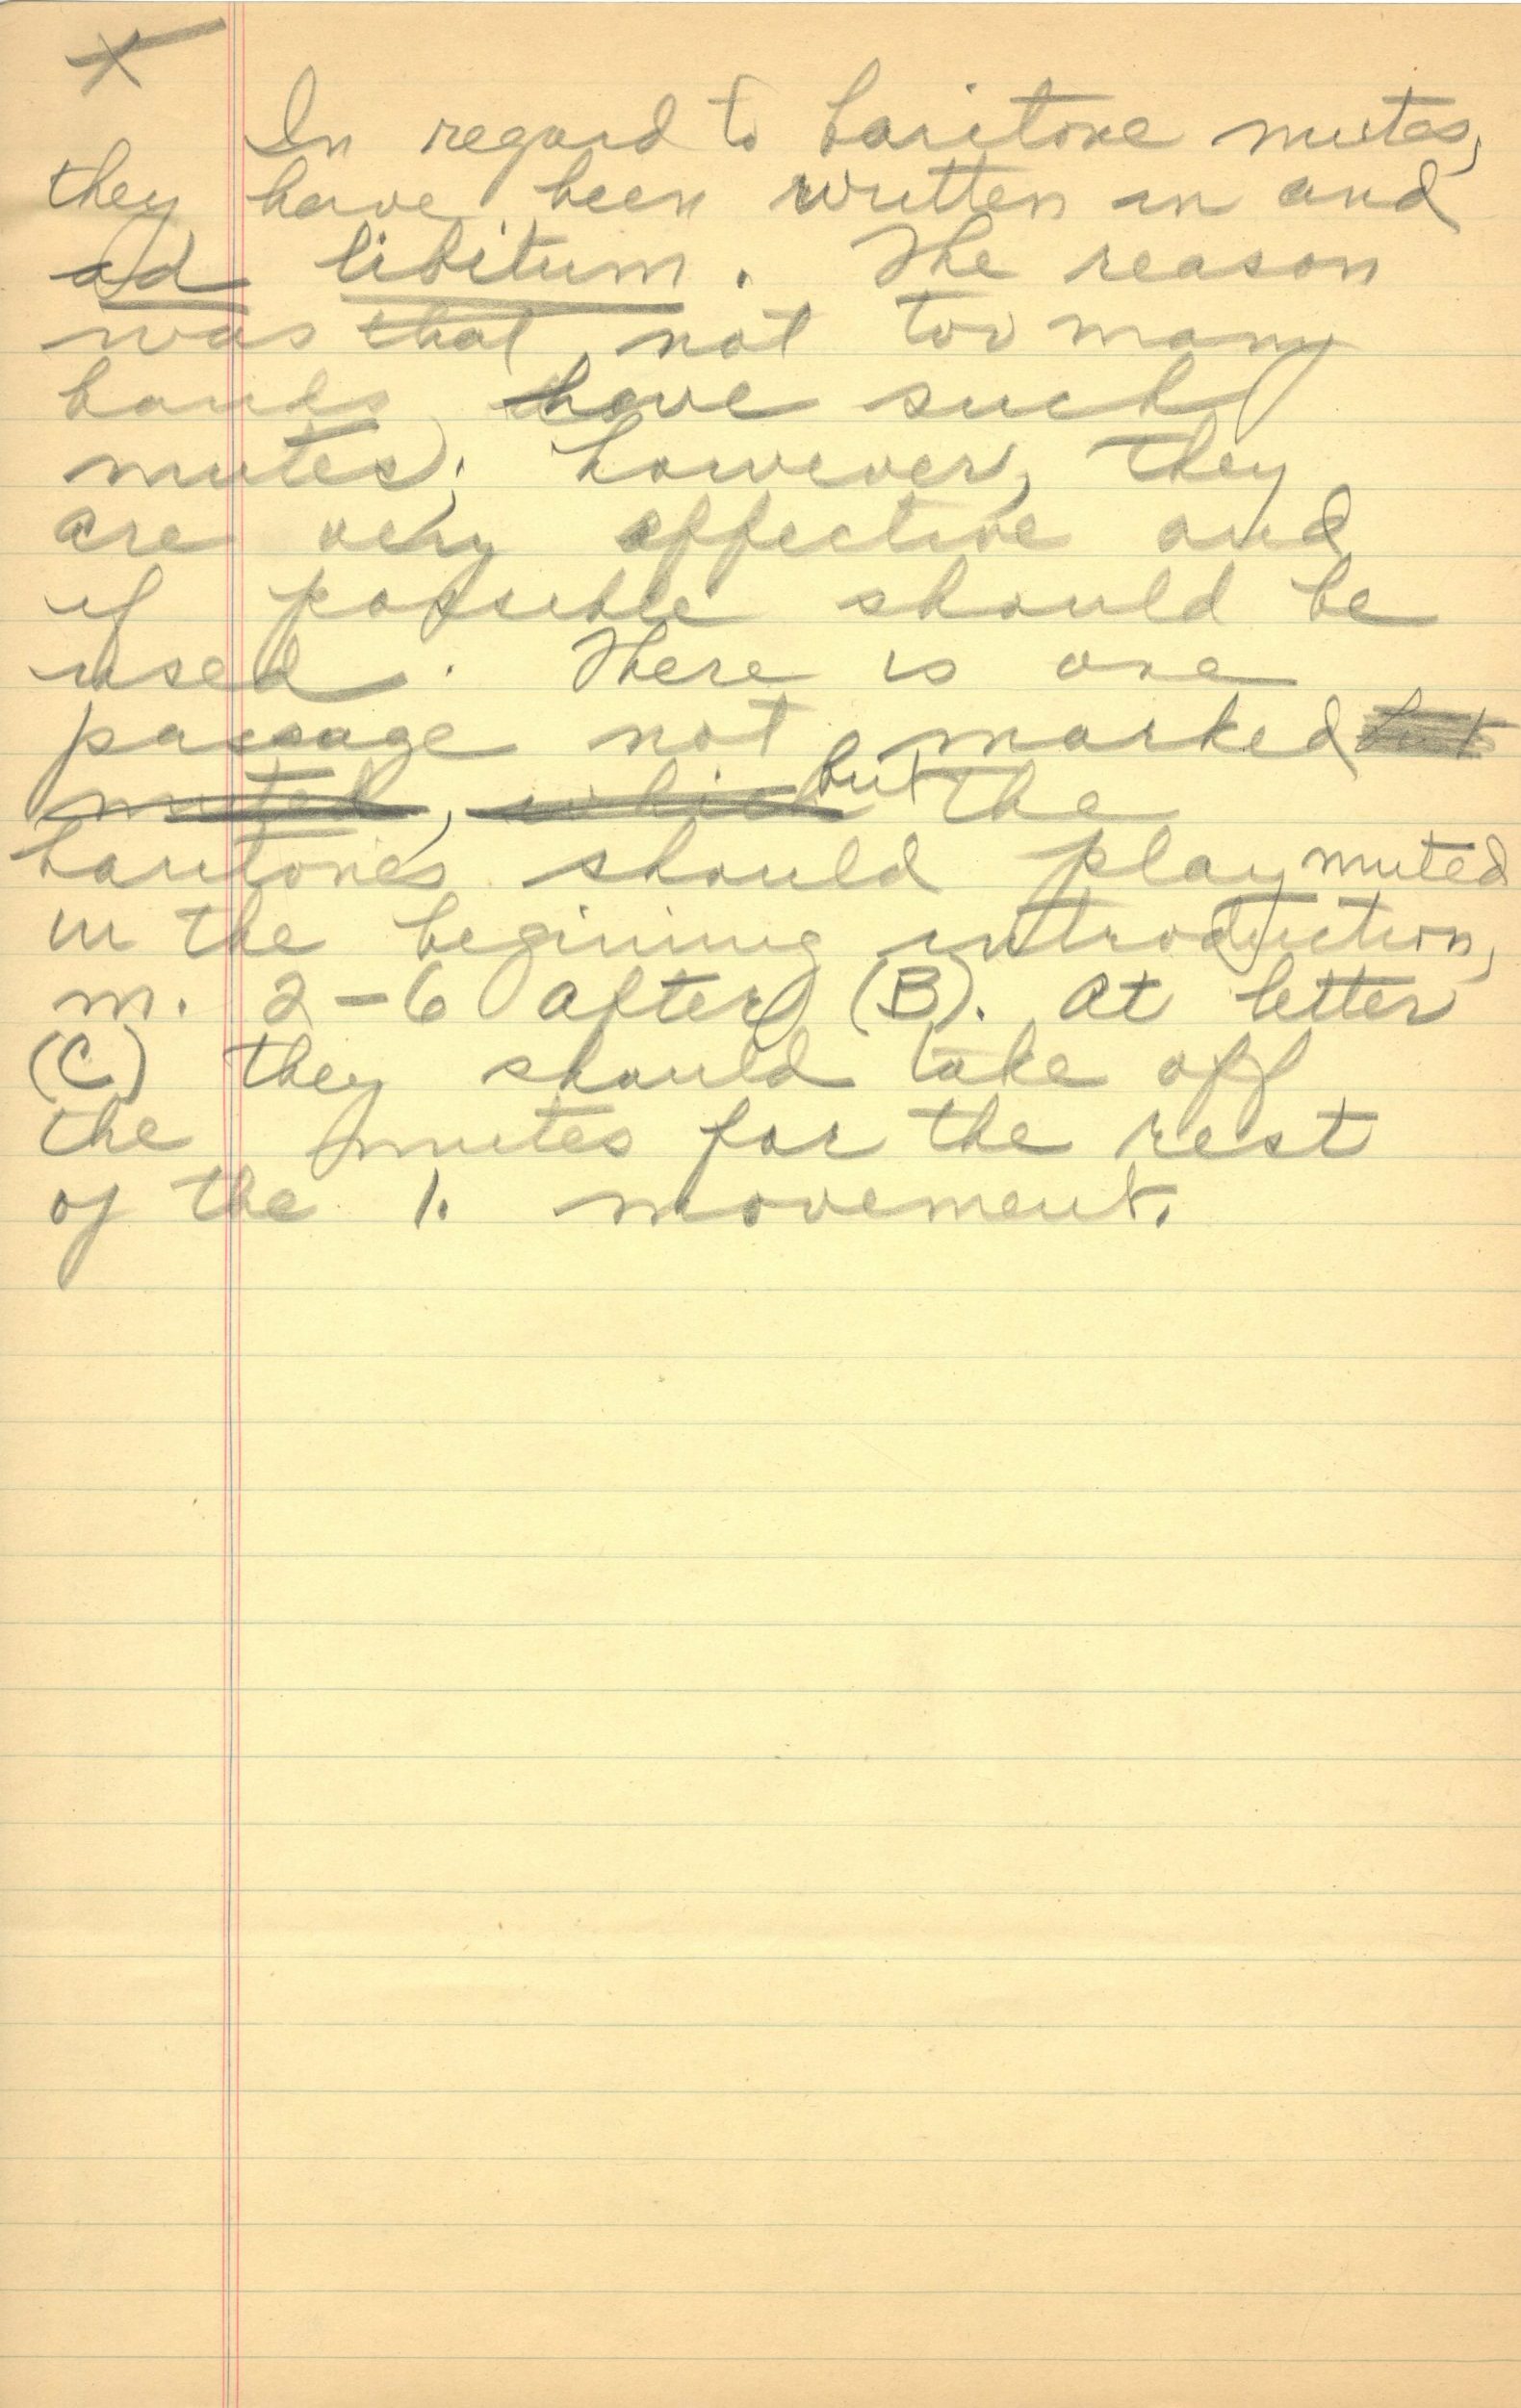 X
In regard to baritone mutes,
they have been written in and
ad libitum. The reason
was that not too many
bands have such
mutes; however, they
are very effective and
if possible should be
used. There is one
passage not marked but
muted, which but the
baritones should play muted
in the begining introduction,
m. 2-6 after (B). At letter
(C) they should take off
the mutes for the rest
of the 1. movement.